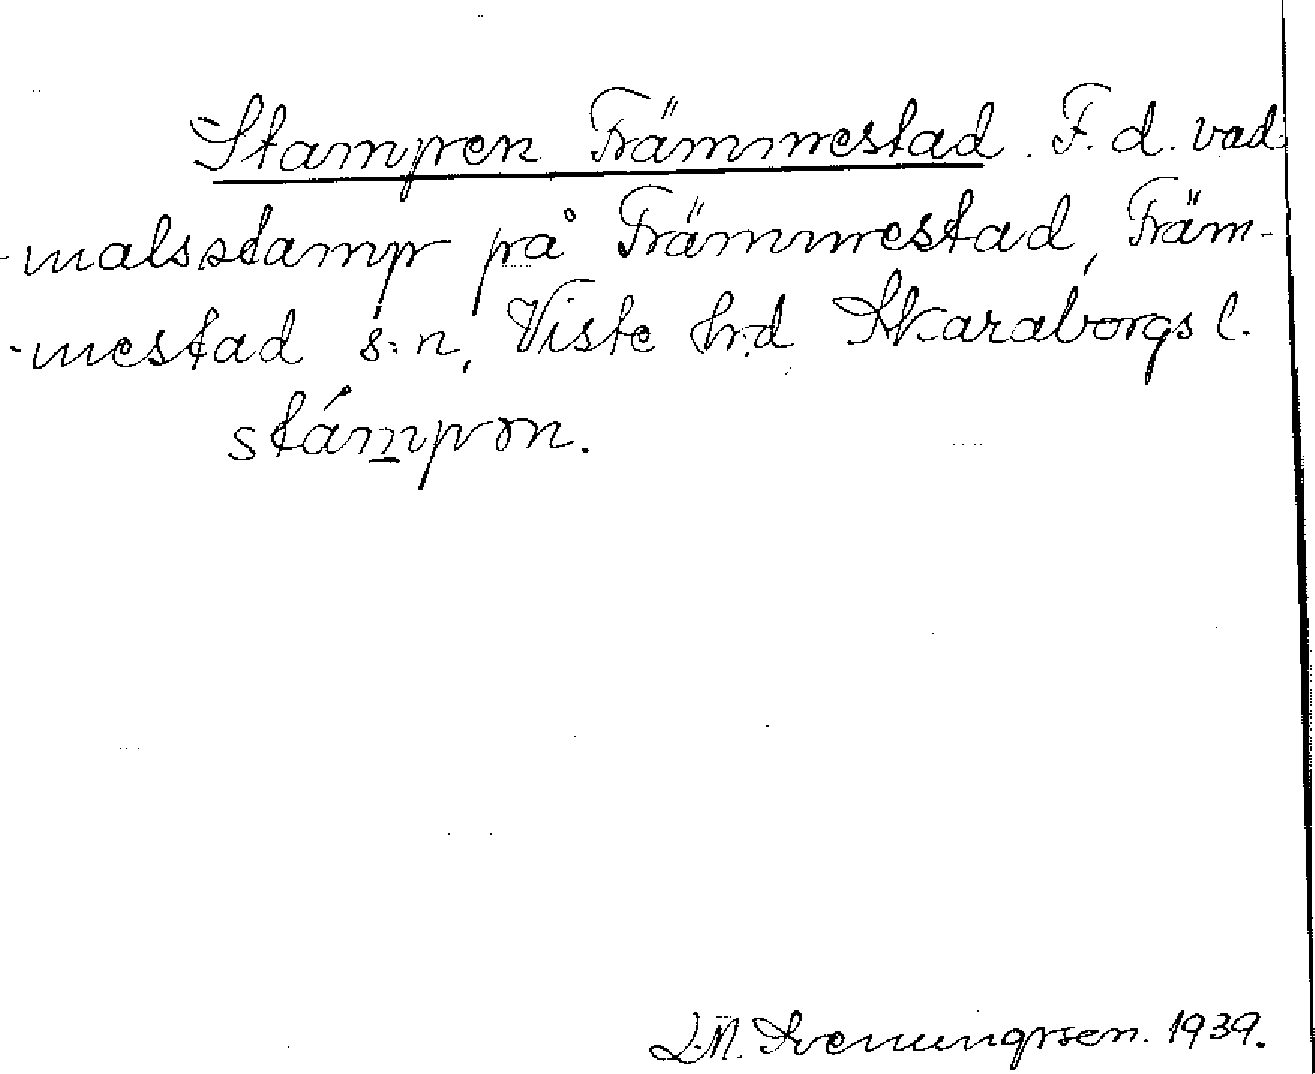 Stampen Främmestad. F. d. vad-
-malsstamp på Främmestad, Främ-
-mestad s:n, Viste hrd Skaraborgs l.
stámpon.
L.M. Svenungsson. 1939.